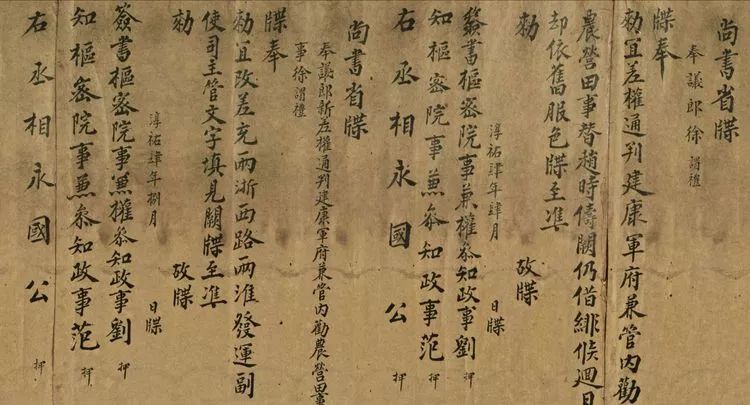 尚書省牒
奉議郎徐謂禮
牒奉
勑宜差權通判建康軍府兼管内勸
農營田事替趙時儔闕仍借緋候迴日
却依舊服色牒至準
勑 故牒
淳祐肆年肆月 日牒
簽書樞密院事兼權參知政事劉 押
知樞密院事兼參知政事范 押
右丞相永國公 押
尚書省牒
奉議郎新差權通判建康軍府兼管内勸農營田事
事徐謂禮
牒奉
勑宜改差充兩浙西路兩淮發運副
使司主管文字填見闕牒至準
勑 故牒
淳祐肆年捌月 日牒
簽書樞密院事兼權參知政事劉 押
知樞密院事兼參知政事范 押
右丞相永國公 押